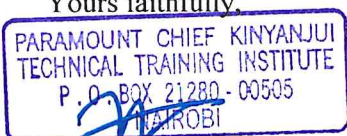 Yours faithfully,
PARAMOUNT CHIEF KINYANJUI
TECHNICAL TRAINING INSTITUTE
P.O. BOX 21280 - 00505
NAIROBI